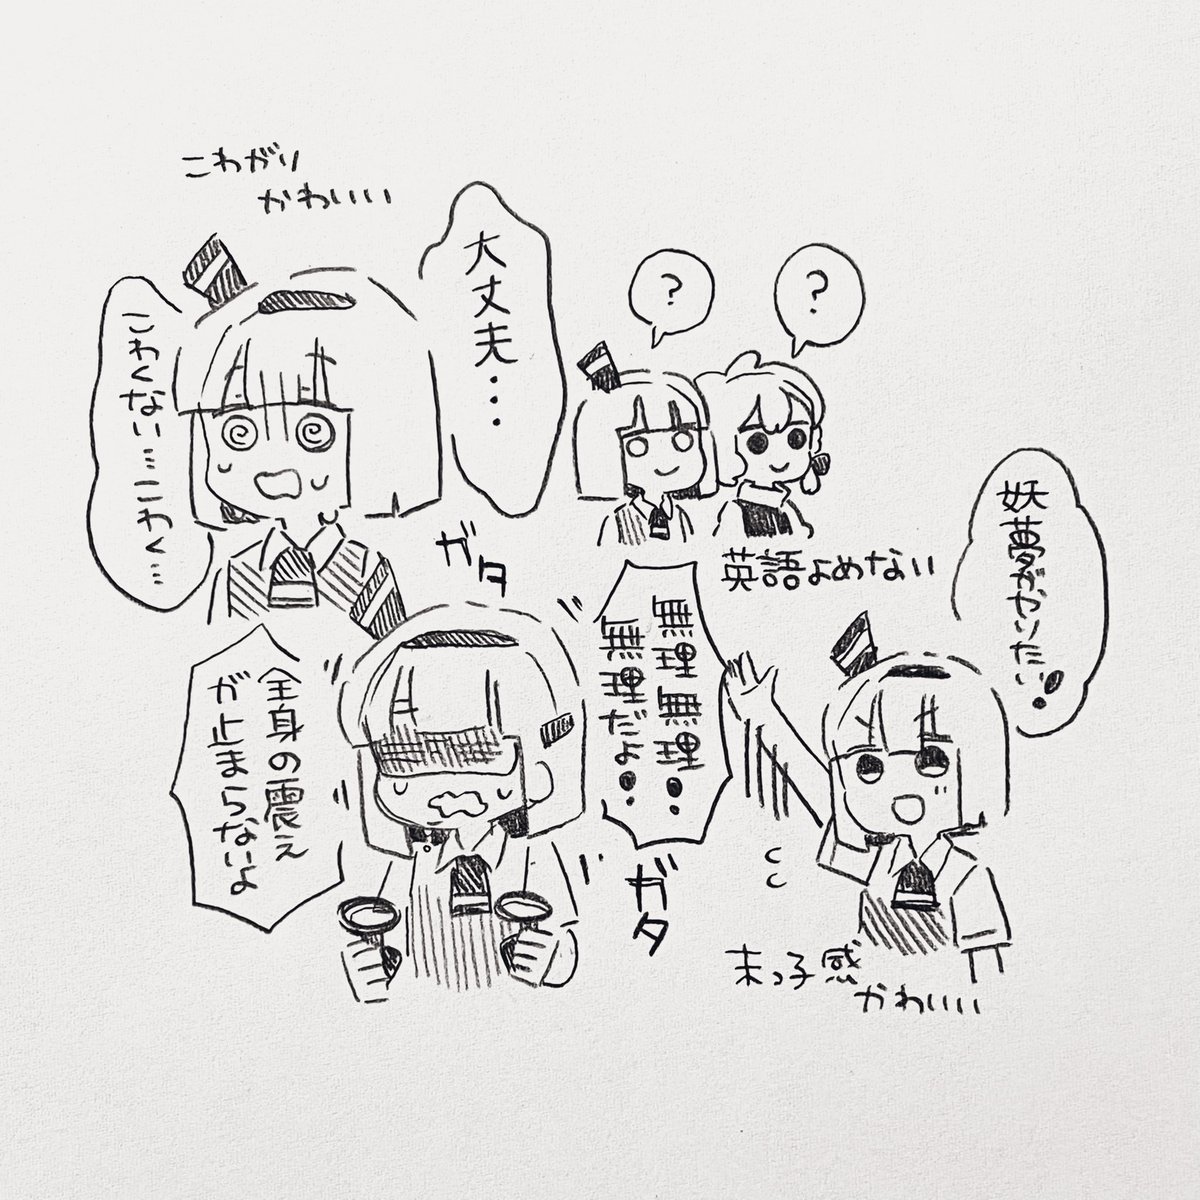 こわがり
かわいい
大丈夫…
こわくない…こわく…
ガタ
?
?
英語よめない
無理無理
無理だよ!!
全身の震え
が止まらないよ
ガタ
妖夢がやりたい!!
末っ子感
かわいい